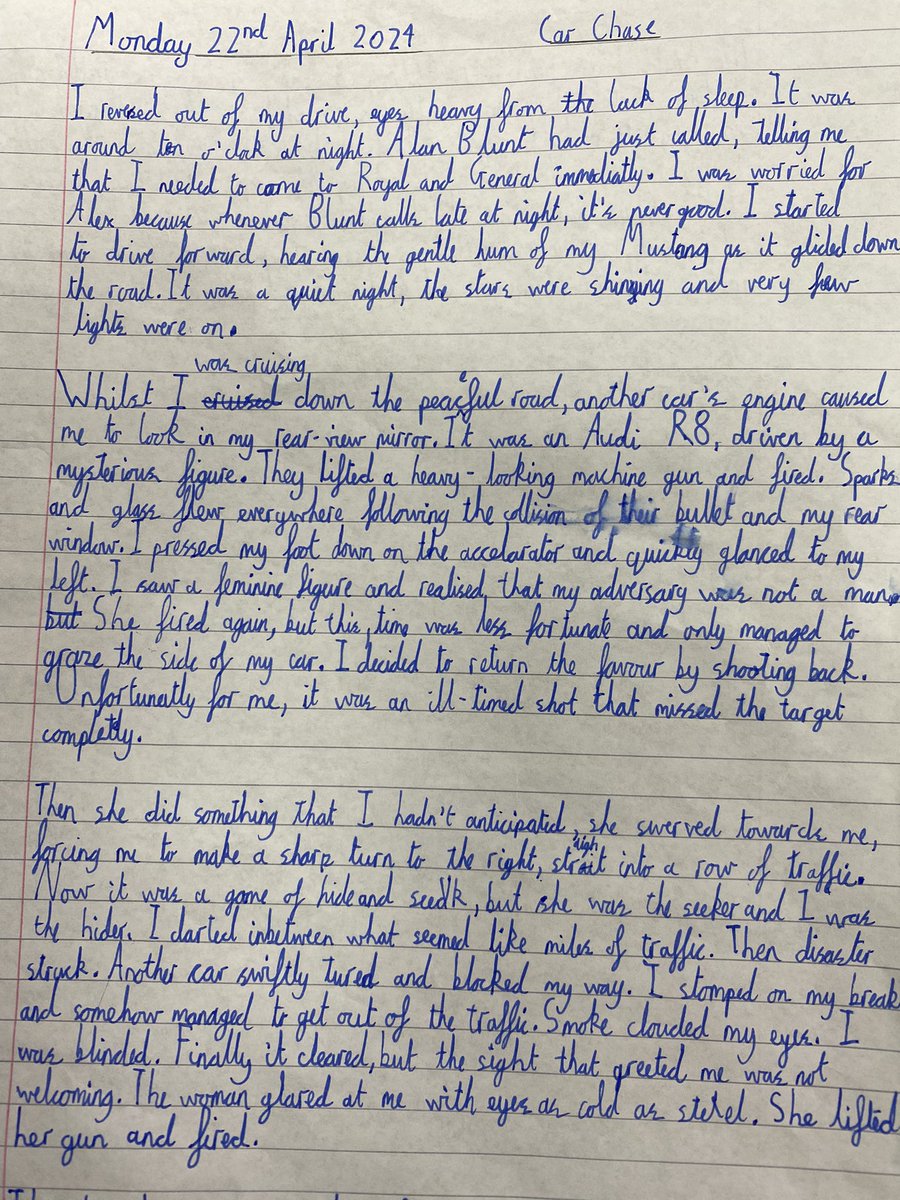 Monday 22nd April 2024 Car Chase
I reversed out of my drive, eyes heavy from the lack of sleep. It was
around ten o'clock at night. Alan Blunt had just called, telling me
that I needed to come to Royal and General immediatly. I was worried for
Alex because whenever Blunt calls late at night, it's never good. I started
to drive forward, hearing the gentle hum of my Mustang as it glided down
the road. It was a quiet night, the stars were shinging and very few
lights were on.
was cruising
Whilst I cruised down the peaceful road, another car's engine caused
me to look in my rear-view mirror. It was an Audi R8, driven by a
mysterious figure. They lifted a heavy-looking machine gun and fired. Sparks
and glass flew everywhere following the collision of their bullet and my rear
window. I pressed my foot down on the accelarator and quickly glanced to my
left. I saw a feminine figure and realised, that my adversary was not a man.
but She fired again, but this, time was less fortunate and only managed to
graze the side of my car. I decided to return the favour by shooting back.
Unfortunatly for me, it was an ill-timed shot that missed the target
completly.
Then she did something that I hadn't anticipated, she swerved towards me,
forcing me to make a sharp turn to the right, straight into a row of traffic.
Now it was a game of hide and seek, but she was the seeker and I was
the hider. I darted inbetween what seemed like miles of traffic. Then disaster
struck. Another car swiftly tured and blocked my way. I stomped on my break
and somehow managed to get out of the traffic. Smoke clouded my eyes. I
was blinded. Finally it cleared, but the sight that greeted me was not
welcoming. The woman glared at me with eyes as cold as steel. She lifted
her gun and fired.